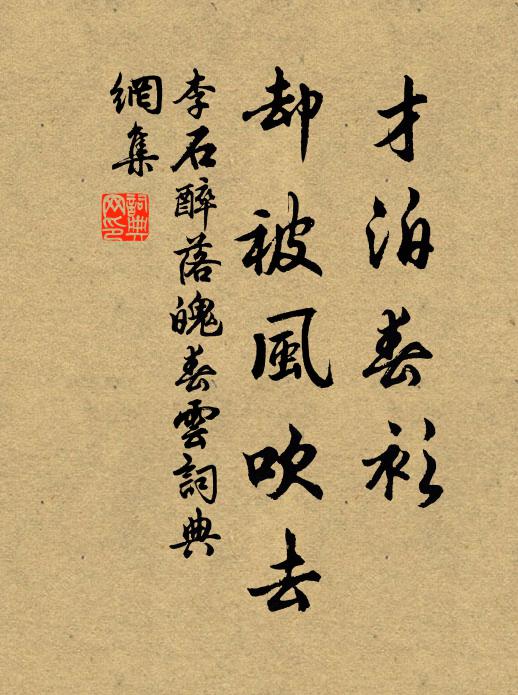 才泊春衫
却被風吹去
李石醉落魄春雲詞典
網集
詞典
网印